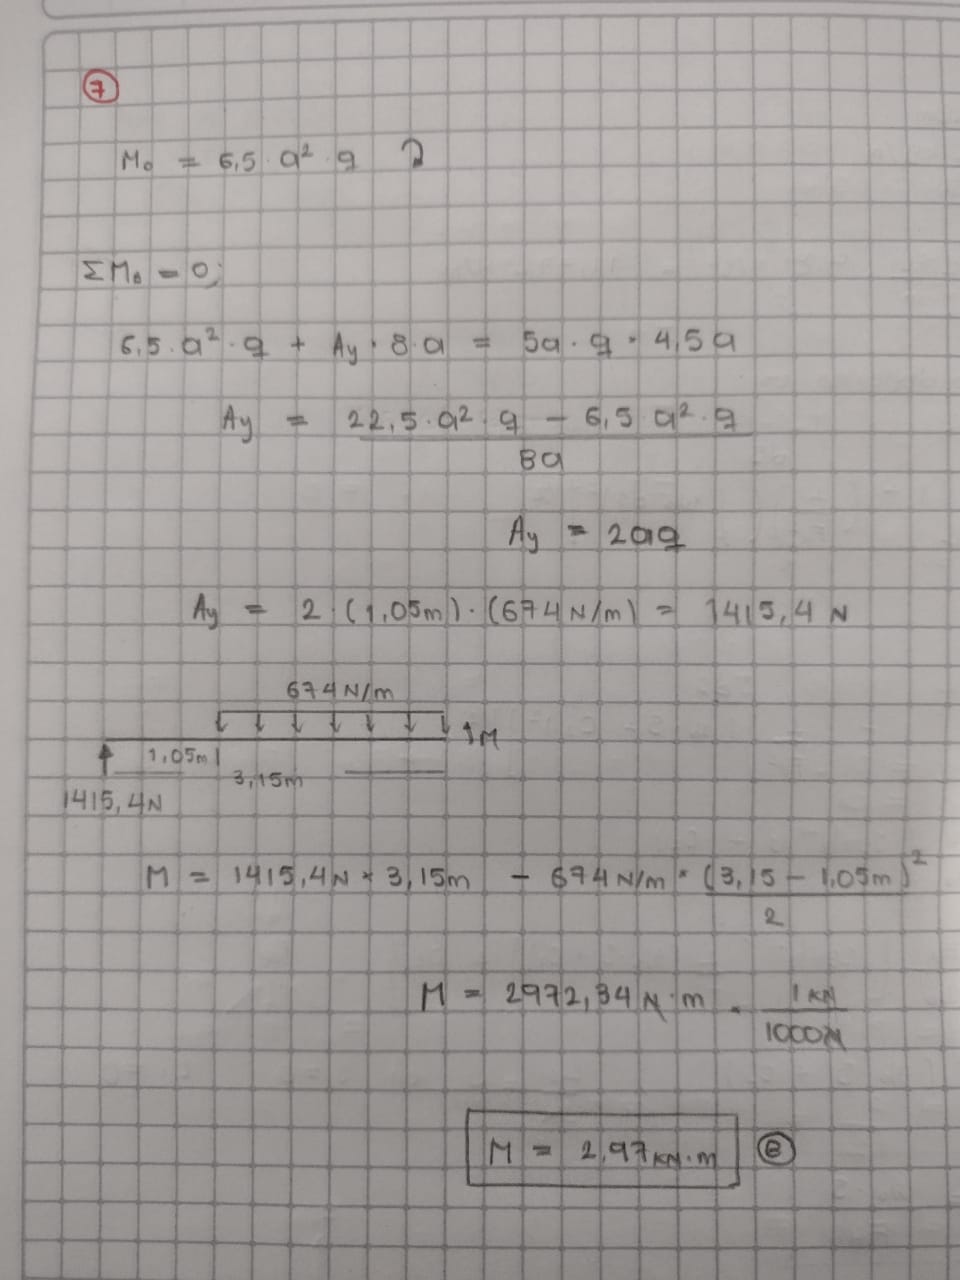 7
M₀ = 6,5 · a² · q ↻
ΣM₀ = 0;
6,5 · a² · q + Ay · 8 · a = 5a · q · 4,5a
Ay = 22,5 · a² · q - 6,5 · a² · q
8a
Ay = 2aq
Ay = 2 · (1,05m) · (674 N/m) = 1415,4 N
674 N/m
M
1,05m
3,15m
1415,4N
M = 1415,4N * 3,15m - 674 N/m * (3,15 - 1,05m)²
2
M = 2972,34 N·m · 1 KN
1000N
M = 2,97 KN·m B